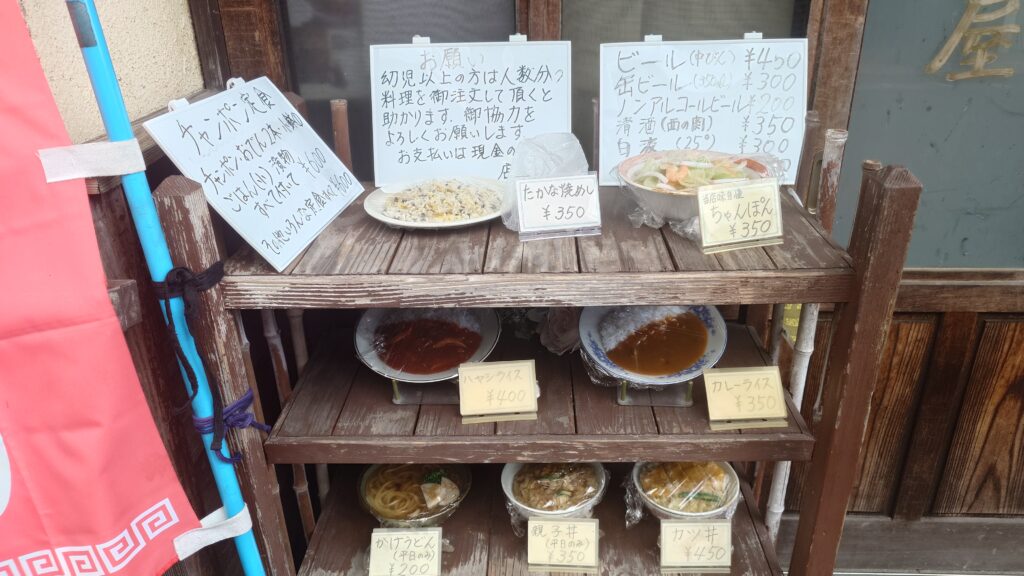 チャンポン定食
ごはん(小)、漬物
すべて付いて ¥600
お願い
幼児以上の方は人数分の
料理を御注文して頂くと
助かります。御協力を
よろしくお願いします。
お支払いは現金の
ビール(中びん) ¥450
缶ビール ¥300
ノンアルコールビール ¥200
清酒 ¥350
(25°)
たかな焼めし
¥350
当店味自慢
ちゃんぽん
¥350
ハヤシライス
¥400
カレーライス
¥350
かけうどん
(平日のみ)
¥200
親子丼
(平日のみ)
¥350
カツ丼
¥450
屋